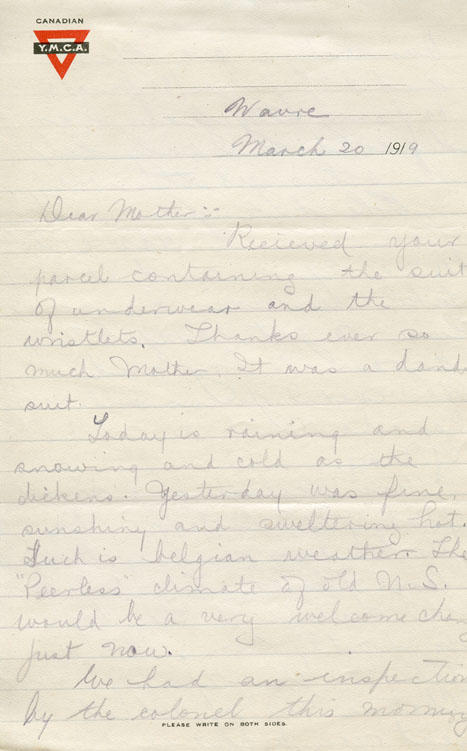 CANADIAN
Y.M.C.A.
Wavre
March 20 1919
Dear Mother :-
Recieved your
parcel containing the suit
of underwear and the
wristlets. Thanks ever so
much Mother. It was a dand
suit.
Today is raining and
snowing and cold as the
dickens. Yesterday was fine,
sunshiny and sweltering hot.
Such is belgian weather. The
"Peerless" climate of old N.S.
would be a very welcome chang
just now.
We had an inspection
by the colonel this morning
PLEASE WRITE ON BOTH SIDES.